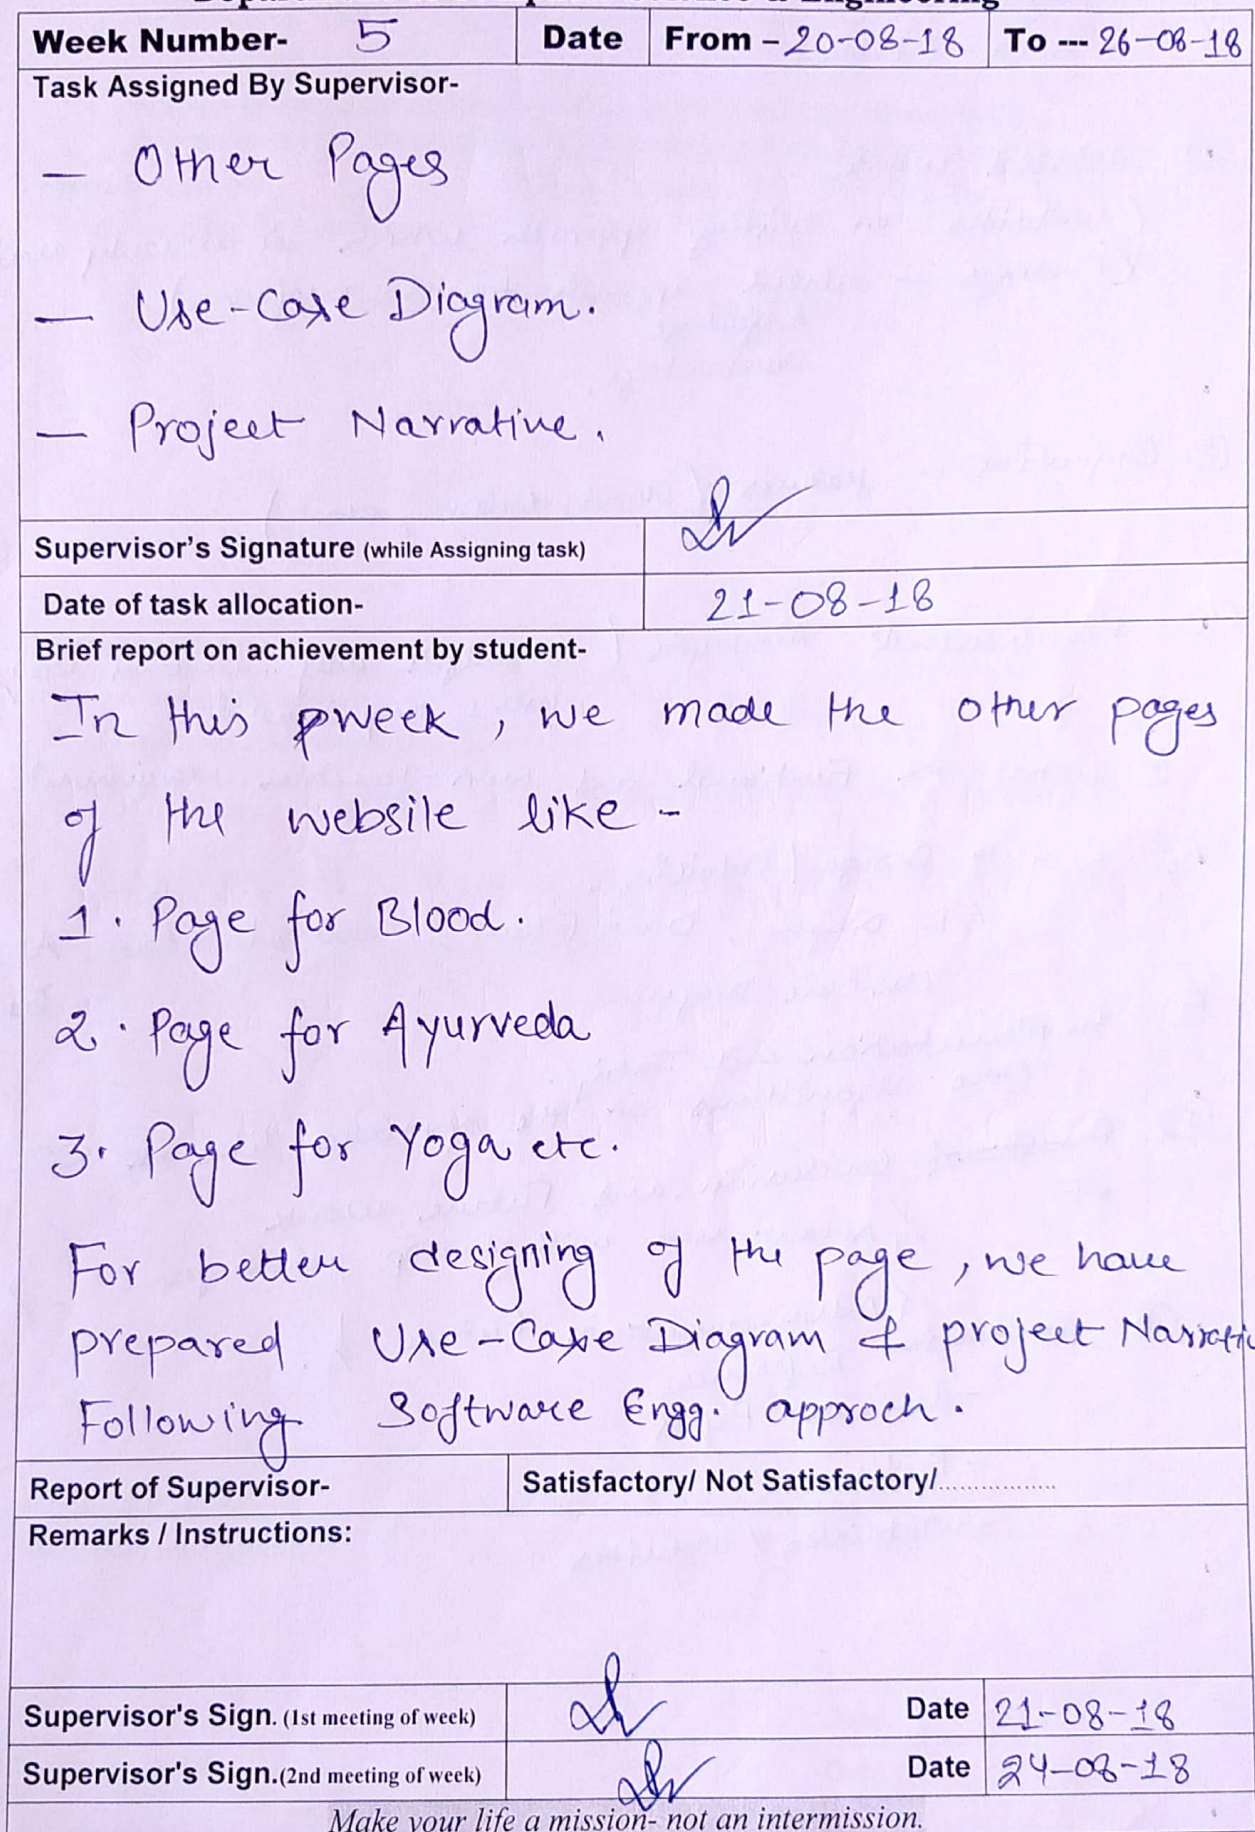 Week Number- 5 Date From - 20-08-18 To --- 26-08-18
Task Assigned By Supervisor-
— Other Pages
— Use-Case Diagram.
— Project Narrative.
Supervisor's Signature (while Assigning task)
Date of task allocation- 21-08-18
Brief report on achievement by student-
In this week, we made the other pages
of the website like -
1. Page for Blood.
2. Page for Ayurveda
3. Page for Yoga etc.
For better designing of the page, we have
prepared Use-Case Diagram & project Narrativ
Following Software Engg. approch.
Report of Supervisor- Satisfactory/ Not Satisfactory/..................
Remarks / Instructions:
Supervisor's Sign. (1st meeting of week) Date 21-08-18
Supervisor's Sign.(2nd meeting of week) Date 24-08-18
Make your life a mission- not an intermission.